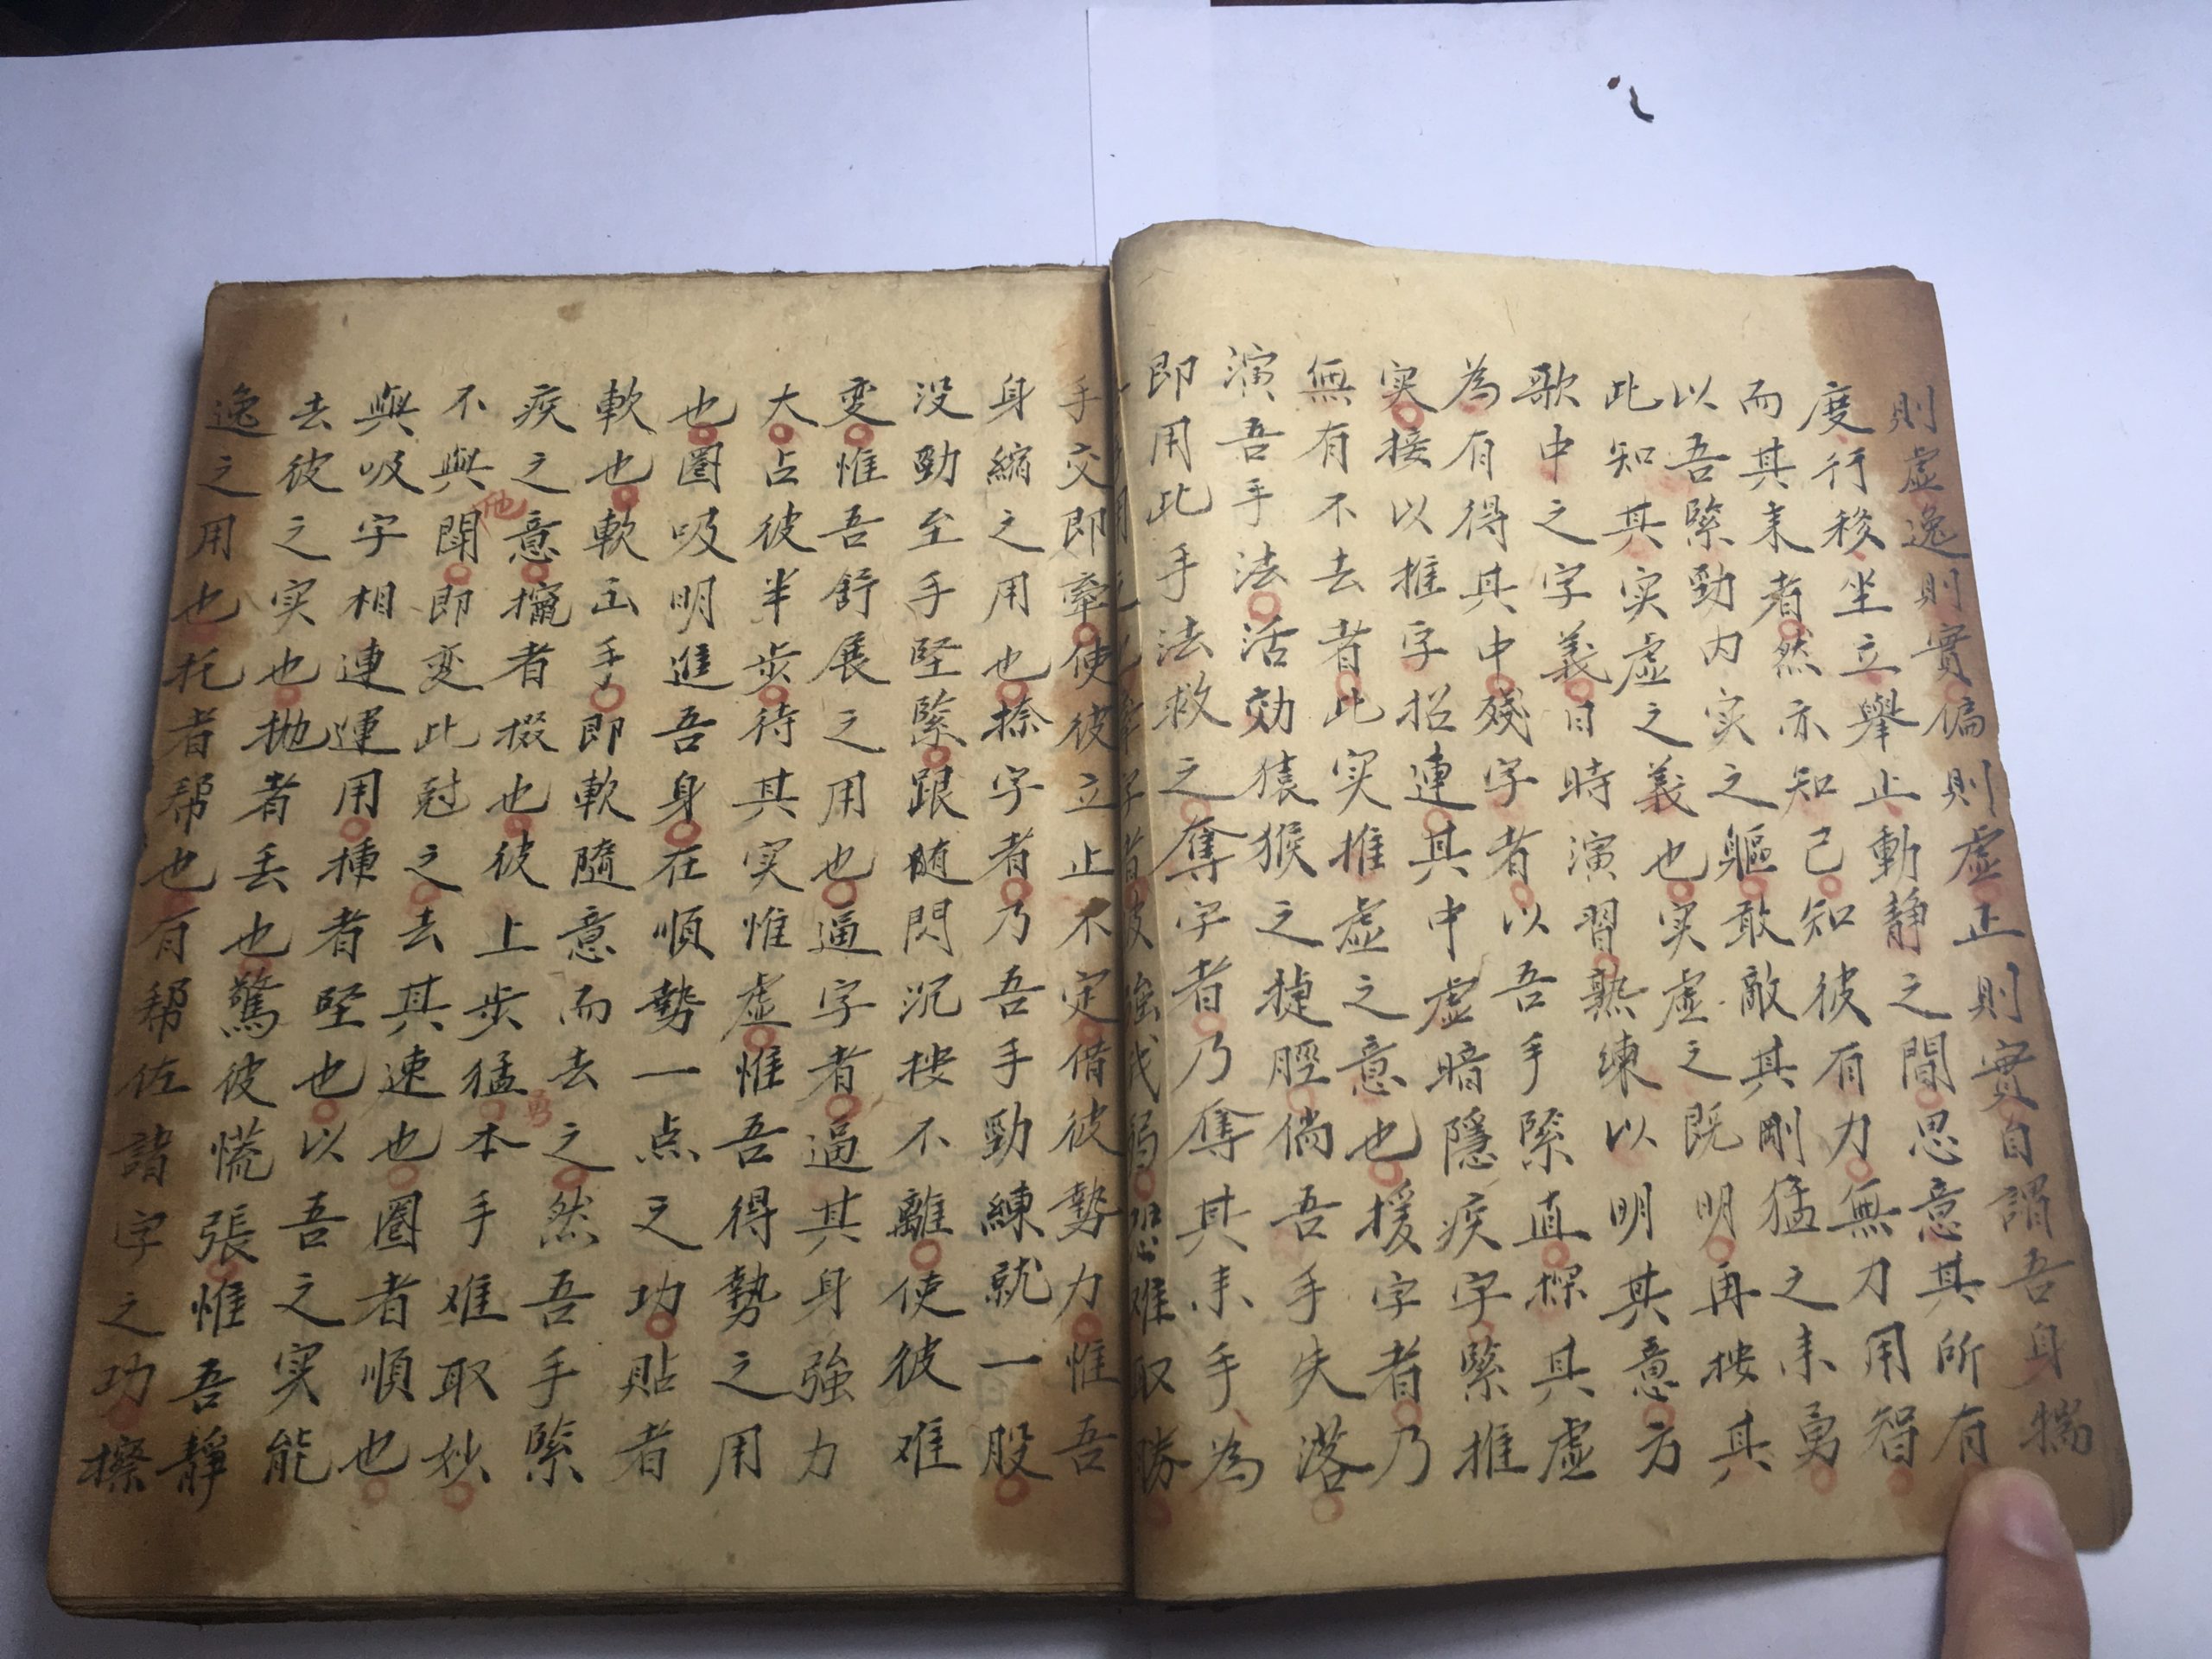 則虛逸則實偏則虛正則實自謂吾身揣
度行移坐立舉止動靜之間思意其所有
而其来者然亦知己知彼有力無力用智
以吾緊勁内实之軀敢敵其剛猛之来勇
此知其实虛之義也实虛之既明再按其
歌中之字義日時演習熟練以明其意方
為有得其中殘字者以吾手緊直探其虛
实接以推字招連其中虛暗隱疾字緊推
無有不去者此实推虛之意也援字者乃
演吾手法活効猿猴之捷脛倘吾手失落
即用此手法救之奪字者乃奪其来手為
字者彼強我弱恐难取勝
手交即牽使彼立止不定借彼勢力惟吾
身縮之用也捺字者乃吾手勁練就一股
没勁至手堅緊跟随閃沉按不離使彼难
变惟吾舒展之用也逼字者逼其身強力
大占彼半步待其实惟虛惟吾得勢之用
也圈吸明進吾身在順勢一点之功貼者
軟也軟正手即軟隨意而去之然吾手緊
疾之意攛者掇也彼上步猛勇本手难取妙
不與他鬪即变此尅之去其速也圈者順也
與吸字相連運用捶者堅也以吾之实能
去彼之实也抛者丢也驚彼慌張惟吾靜
逸之用也托者帮也有帮佐諸字之功擦